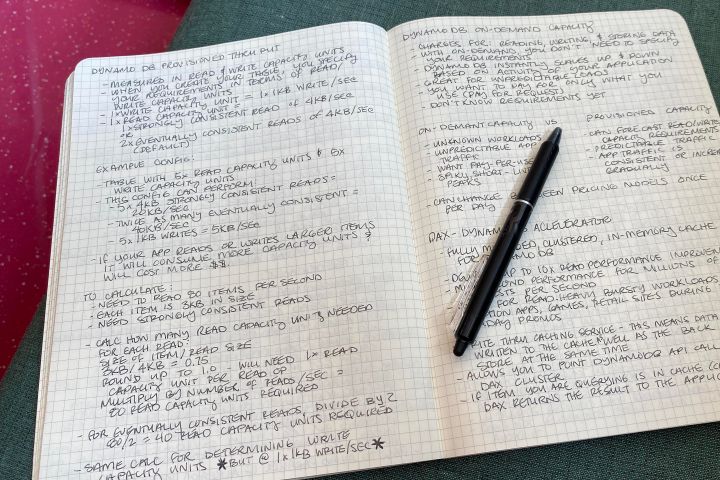 DYNAMO DB PROVISIONED THRUPUT
- MEASURED IN READ & WRITE CAPACITY UNITS
- WHEN YOU CREATE YOUR TABLE, YOU SPECIFY
YOUR REQUIREMENTS IN TERMS OF READ/
WRITE CAPACITY UNITS
- 1 x WRITE CAPACITY UNIT = 1 x 1KB WRITE/SEC
- 1 x READ CAPACITY UNIT =
1 x STRONGLY CONSISTENT READ OF 4KB/SEC
OR
2 x EVENTUALLY CONSISTENT READS OF 4KB/SEC
(DEFAULT)
EXAMPLE CONFIG:
- TABLE WITH 5x READ CAPACITY UNITS & 5x
WRITE CAPACITY UNITS
- THIS CONFIG CAN PERFORM:
- 5 x 4KB STRONGLY CONSISTENT READS =
20KB/SEC
- TWICE AS MANY EVENTUALLY CONSISTENT =
40KB/SEC
- 5 x 1KB WRITES = 5KB/SEC
- IF YOUR APP READS OR WRITES LARGER ITEMS
IT WILL CONSUME MORE CAPACITY UNITS &
WILL COST MORE $$.
TO CALCULATE:
- NEED TO READ 80 ITEMS PER SECOND
- EACH ITEM IS 3KB IN SIZE
- NEED STRONGLY CONSISTENT READS
- CALC HOW MANY READ CAPACITY UNITS NEEDED
FOR EACH READ:
SIZE OF ITEM / READ SIZE
3KB/4KB = 0.75
ROUND UP TO 1.0 WILL NEED 1x READ
CAPACITY UNIT PER READ OP
MULTIPLY BY NUMBER OF READS/SEC =
80 READ CAPACITY UNITS REQUIRED
- FOR EVENTUALLY CONSISTENT READS, DIVIDE BY 2
80/2 = 40 READ CAPACITY UNITS REQUIRED
- SAME CALC FOR DETERMINING WRITE
CAPACITY UNITS *BUT @ 1 x 1KB WRITE/SEC*
DYNAMO DB ON-DEMAND CAPACITY
- CHARGES FOR: READING, WRITING, & STORING DATA
- WITH ON-DEMAND, YOU DON'T NEED TO SPECIFY
YOUR REQUIREMENTS
- DYNAMO DB INSTANTLY SCALES UP & DOWN
BASED ON ACTIVITY OF YOUR APPLICATION
- GREAT FOR UNPREDICTABLE LOADS
- YOU WANT TO PAY FOR ONLY WHAT YOU
USE (PAY PER REQUEST)
- DON'T KNOW REQUIREMENTS YET
ON-DEMAND CAPACITY VS PROVISIONED CAPACITY
- UNKNOWN WORKLOADS - CAN FORECAST READ/WRITE
- UNPREDICTABLE APP CAPACITY REQUIREMENTS
TRAFFIC - PREDICTABLE TRAFFIC
- WANT PAY-PER-USE - APP TRAFFIC IS
- SPIKY, SHORT-LIVED CONSISTENT OR INCREASES
PEAKS GRADUALLY
- CAN CHANGE BETWEEN PRICING MODELS ONCE
PER DAY
DAX - ACCLELERATOR
- FULLY CLUSTERED, IN-MEMORY CACHE
FOR DYNAMO DB
UP TO 10x READ PERFORMANCE
PERFORMANCE FOR MILLIONS OF
PER SECOND
FOR READ-HEAVY BURSTY WORKLOADS
APPS, GAMES, RETAIL SITES DURING
PROMOS
THRU CACHING SERVICE - THIS MEANS DATA
WRITTEN TO THE CACHE WELL AS THE BACK
STORE AT THE SAME TIME
- ALLOWS YOU TO POINT DYNAMO DB API
DAX CLUSTER
- IF ITEM YOU ARE QUERYING IS IN CACHE
DAX RETURNS THE RESULT TO THE